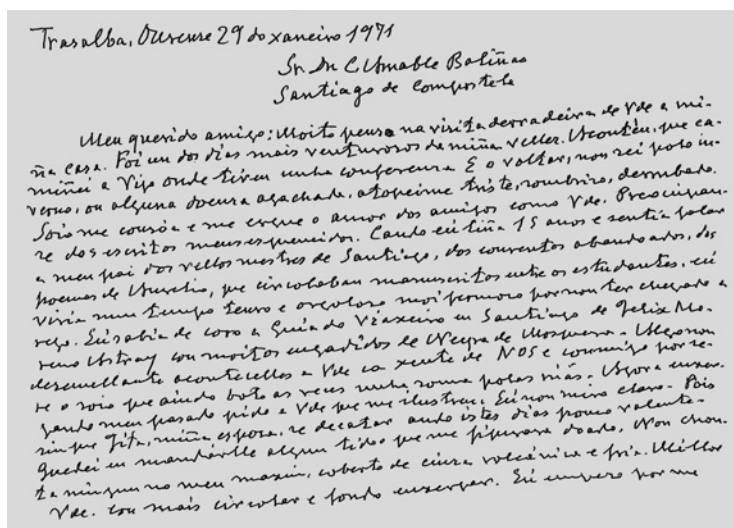 Trasalba, Ourense 29 do xaneiro 1971
Sr. Dn C. Amable Baliñas
Santiago de Compostela
Meu querido amigo: Moito penso na visita derradeira de Vde a mi-
ña casa. Foi un dos días mais venturosos da miña vellez. Acontéu, que ca-
miñei a Vigo onde tiven unha conferenza E o voltar, non sei polo in-
verno, ou algunha doenza agachada, atopeime triste, sombrizo, derrubado.
Soio me consóa e me ergue o amor dos amigos como Vde. Preocupan-
se dos escritos meus esquencidos. Cando eu tiña 15 anos e sentía falar
a meu pai dos vellos mestres de Santiago, dos conventos abandoados, dos
poemas de Aurelio, que circolaban manuscritos entre os estudantes, eu
vivía nun tempo tenro e orgoloso moi fermoso por non ter chegado a
vego. Eu sabía de coro a Guía do Viaxeiro en Santiago de Felix Mo-
reno Astray con moitos engadidos de Neyra de Mosquera. Algo non
desemellante aconteceulles a Vde ca xente de NOS e conmigo por se-
re o soio que ainda bota as veces unha soma polas rúas. Agora enxer-
gando meu pasado pido a Vde que me ilustre. Eu non miro claro. Pois
sin que Fita, miña esposa, se decatar ando istes días pouco valente.
Quedei en mandarlle algun tidoo que me figurara doado. Non chou-
ta ningun no meu maxin, coberto de cinza volcánica e fria. Millor
Vde. con mais circolar e fondo enxergar. Eu empezo por me